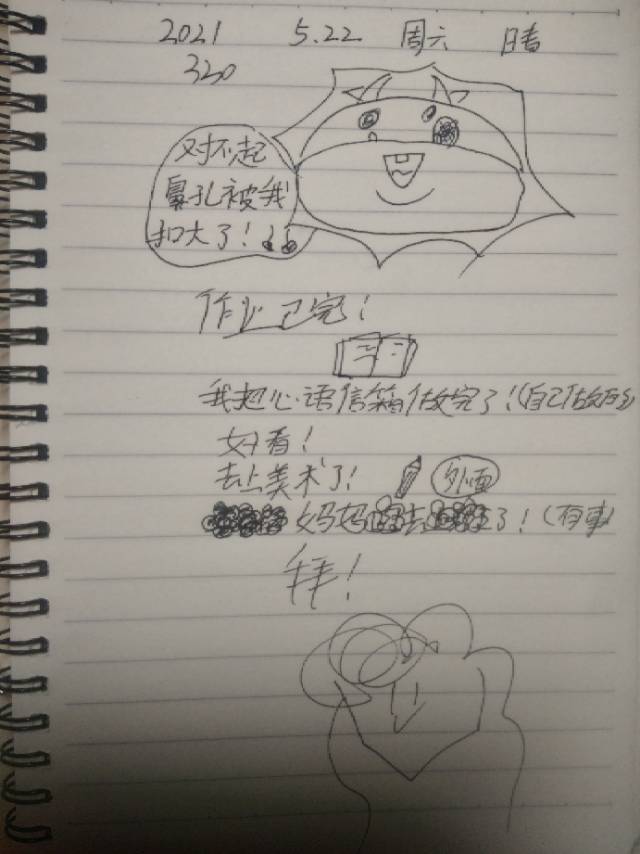 2021 5.22 周六 晴
320
对不起
鼻孔被我
扣大了!
作业已完!
我把心语信箱做完了!(自己做的)
好看!
去上美术了! 外面
妈妈 去 了!(有事)
拜!